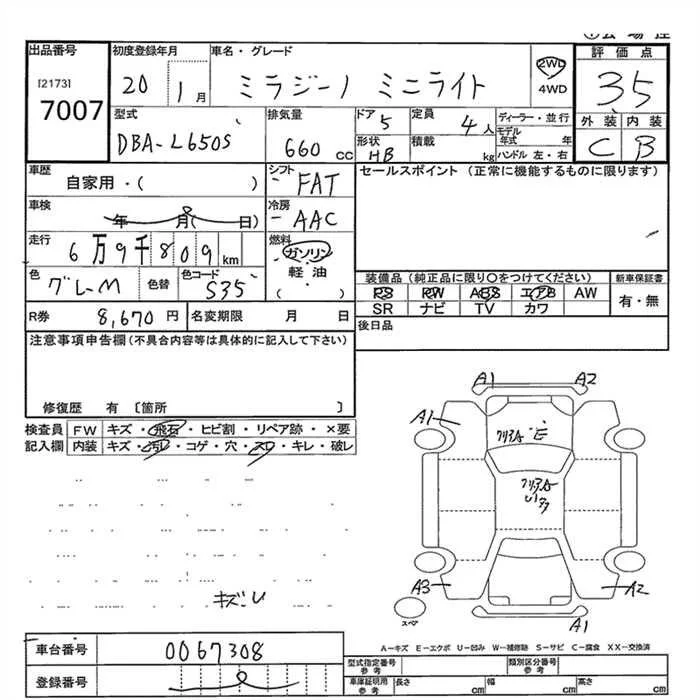 出品番号 初度登録年月 車名・グレード 評価点
[2173] 7007
20 1月 ミラジーノ ミニライト 2WD 4WD 35
型式 排気量 ドア 定員 ディーラー・並行 外装 内装
DBA-L650S 660 CC 5 4人 モデル年式 年 C B
形状 HB 積載 kg ハンドル 左・右
車歴 シフト セールスポイント (正常に機能するものに限ります)
自家用・( ) FAT
車検 冷房
年 月( 日) AAC
走行 燃料
6万9千809km ガソリン
色 色替 色コード 軽油
グレーM S35 ( )
装備品(純正品に限り○をつけてください) 新車保証書
PS PW ABS エアB AW 有・無
SR ナビ TV カワ
R券 8,670円 名変期限 月 日 後日品
注意事項申告欄(不具合内容等は具体的に記入して下さい)
修復歴 有 〔箇所 〕
検査員 FW キズ・飛石・ヒビ割・リペア跡・×要
記入欄 内装 キズ・汚レ・コゲ・穴・スレ・キレ・破レ
A1 A2
A1
E
A3 A2
A1
スペア
キズ・U
A=キズ E=エクボ U=凹み W=補修跡 S=サビ C=腐食 XX=交換済
車台番号 0067308
登録番号
型式指定番号 参考 類別区分番号 参考
車庫証明用 参考 長さ cm 幅 cm 高さ cm